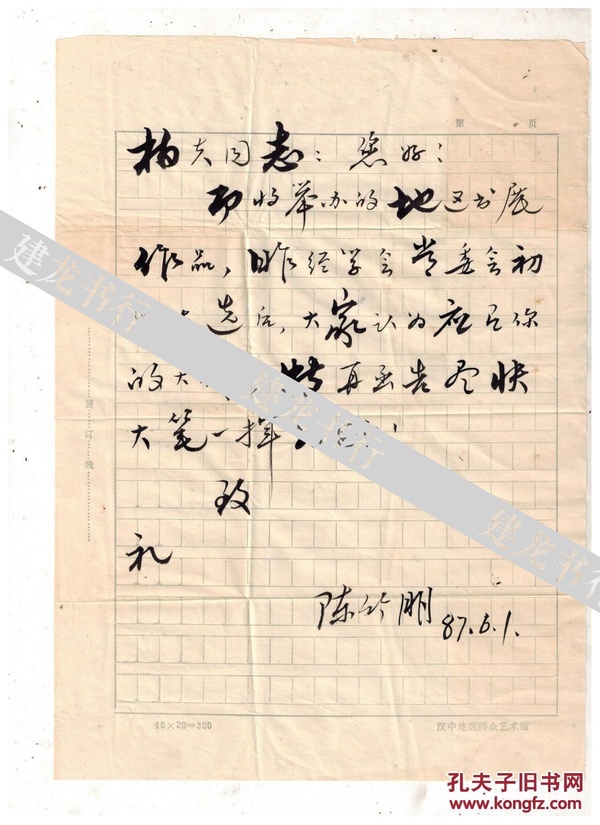 第 页
杨夫同志：您好！
即将举办的地区书展
作品，昨经学会常委会初
选后，大家认为应有你
的大 特再函告尽快
大笔一挥
致
礼
陈竹朋 87.6.1.
装订线
15×20=300
汉中地区群众艺术馆
建龙书行
建龙书行
建龙书行
孔夫子旧书网
www.kongfz.com